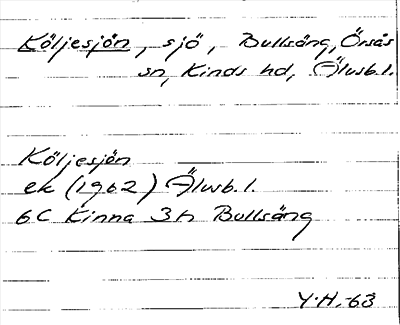 Köljesjön, sjö, Bullsäng, Örsås
sn, Kinds hd, Älvsb.l.
Köljesjön
ek (1962) Älvsb.l.
6C Kinna 3h Bullsäng
Y.H.-63